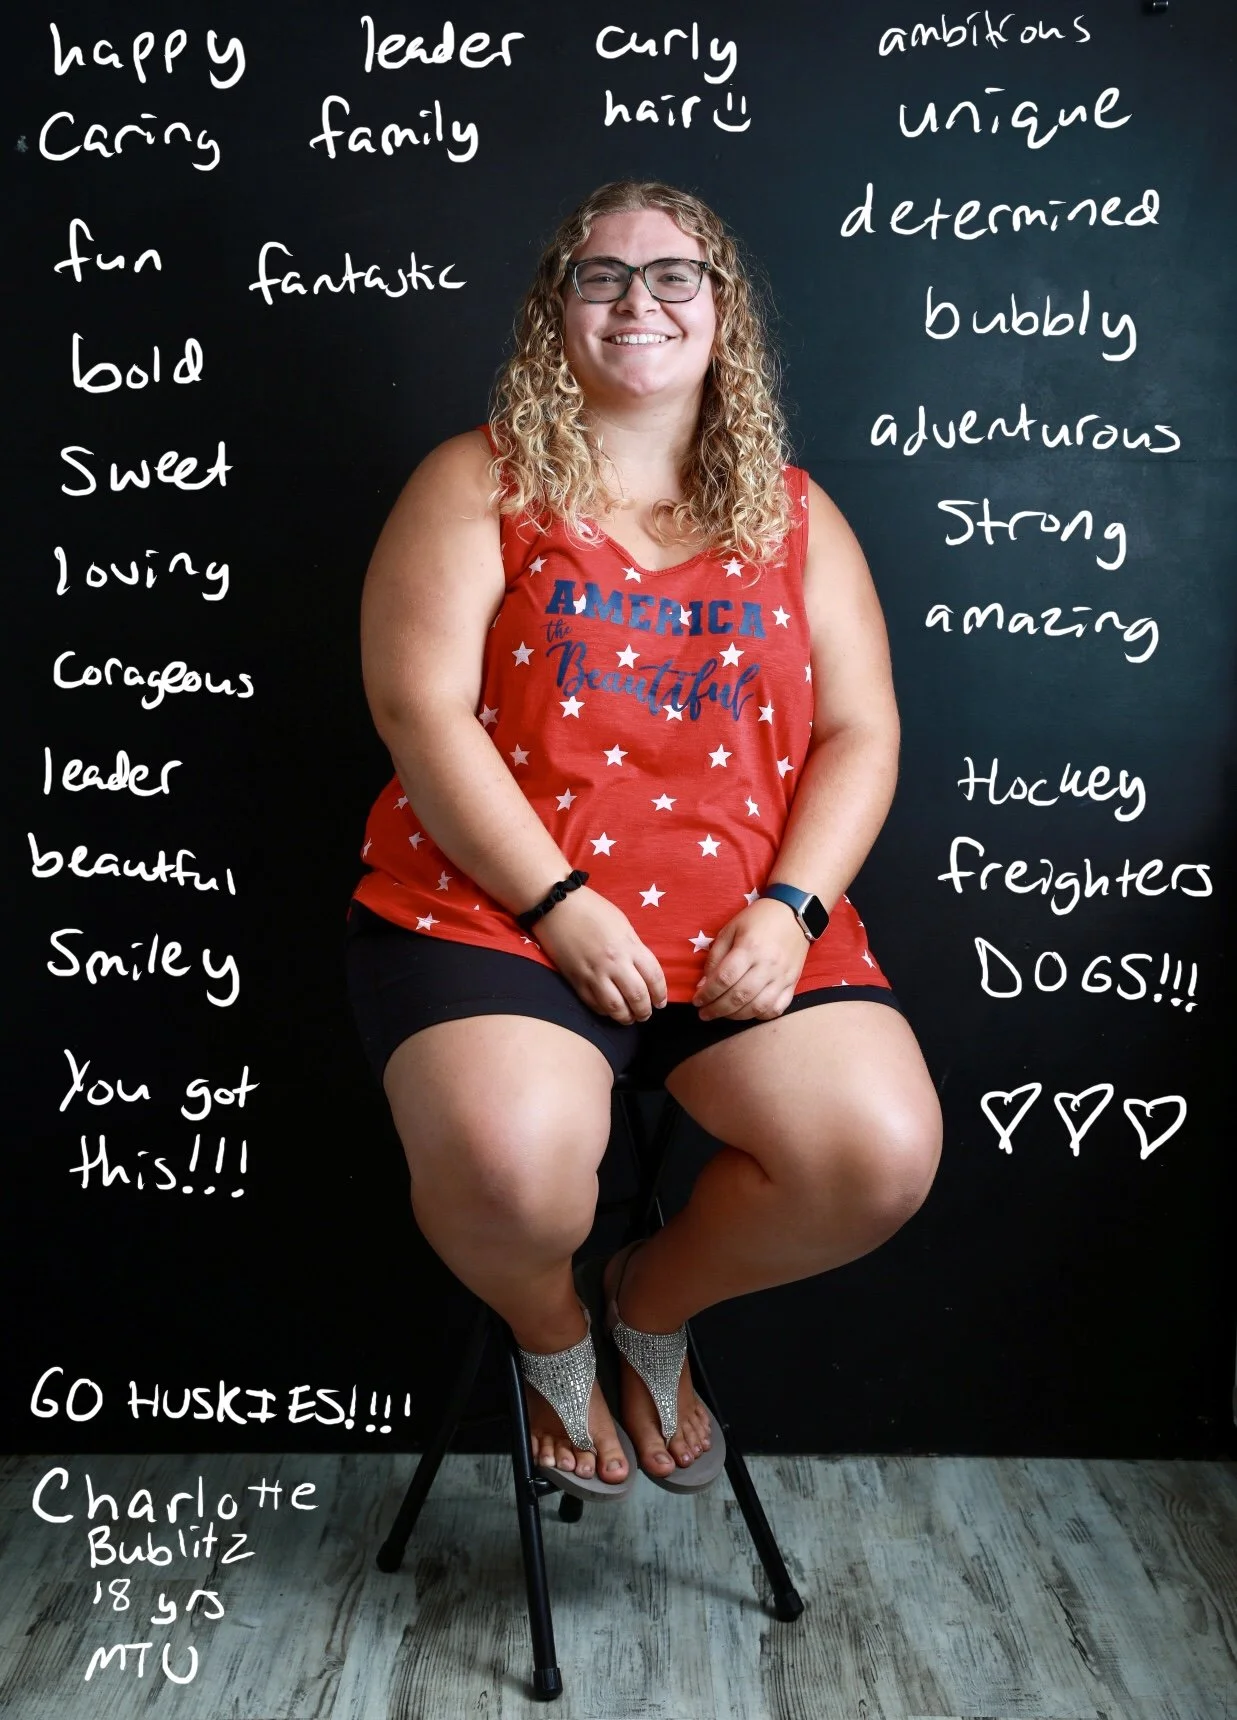 happy
Caring
fun
bold
Sweet
loving
Corageous
leader
beautful
Smiley
You got
this!!!
leader
family
fantastic
curly
hair
ambitious
unique
determined
bubbly
adventurous
Strong
amazing
Hockey
freighters
DOGS!!!
AMERICA
the
Beautiful
GO HUSKIES!!!!
Charlotte
Bublitz
18 yrs
MTU